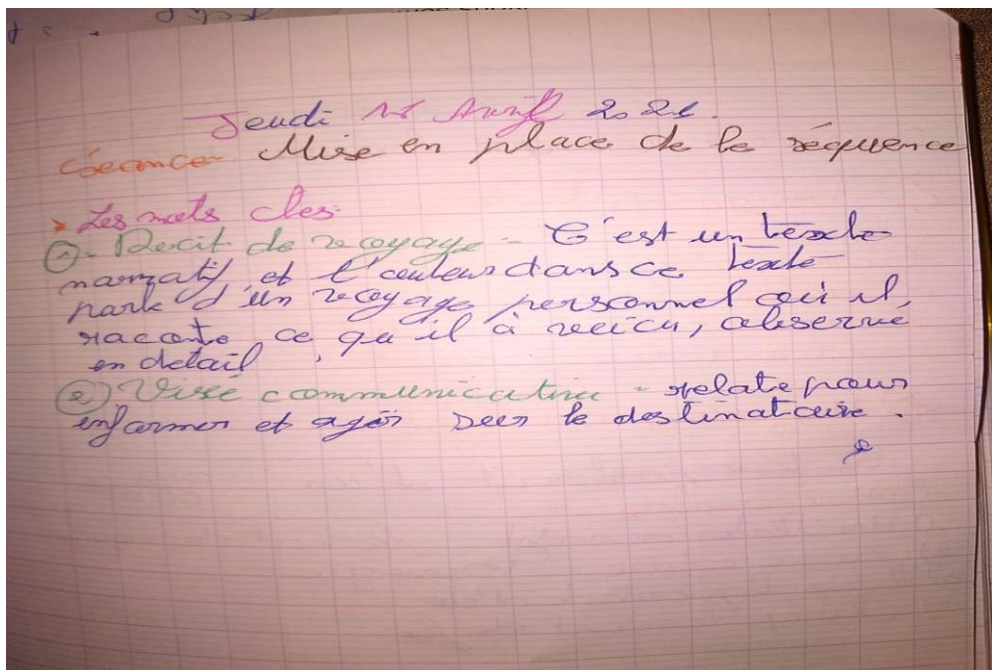 Jeudi 15 Avril 2021.
Séance Mise en place de la séquence
Les mots clés
1 - Recit de voyage - C'est un texte
narratif et l'auteur dans ce texte
parle d'un voyage personnel où il
raconte ce qu'il à vécu, observé
en detail.
2) Visé communicative - relate pour
informer et agir sur le destinataire.